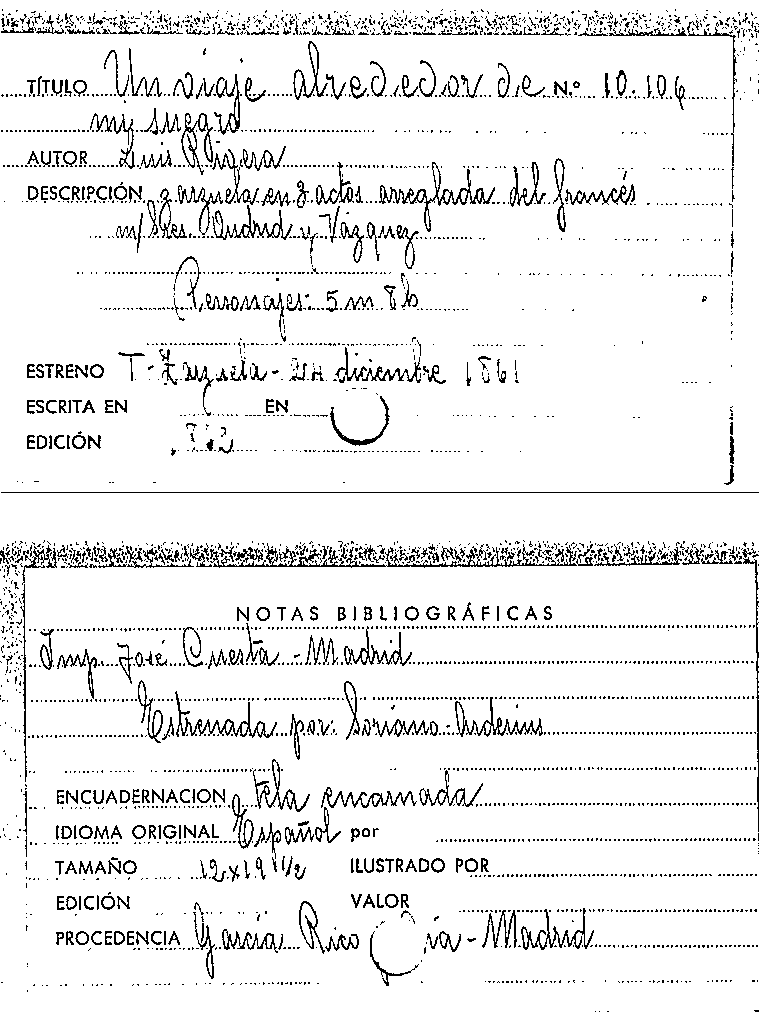 TÍTULO Un viaje alrededor de N.º 10.106
mi suegro
AUTOR Luis Rivera
DESCRIPCIÓN zarzuela en 3 actos arreglada del francés
m/ Sres. Oudrid y Vázquez
Personajes: 5 m 8 h
ESTRENO T. Zarzuela - 24 diciembre 1861
ESCRITA EN EN
EDICIÓN 862
NOTAS BIBLIOGRÁFICAS
Imp. José Cuesta - Madrid
Estrenada por: Soriano - Arderius
ENCUADERNACION tela encarnada
IDIOMA ORIGINAL Español por
TAMAÑO 12x19 1/2 ILUSTRADO POR
EDICIÓN VALOR
PROCEDENCIA García Rico ía - Madrid